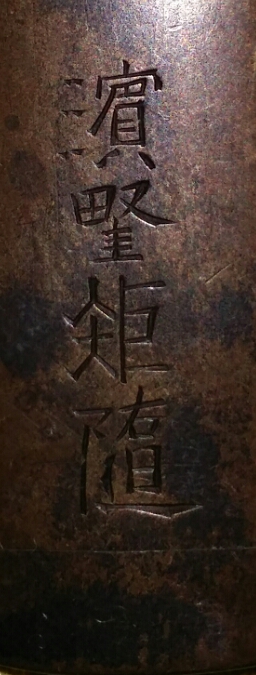 濱野矩随